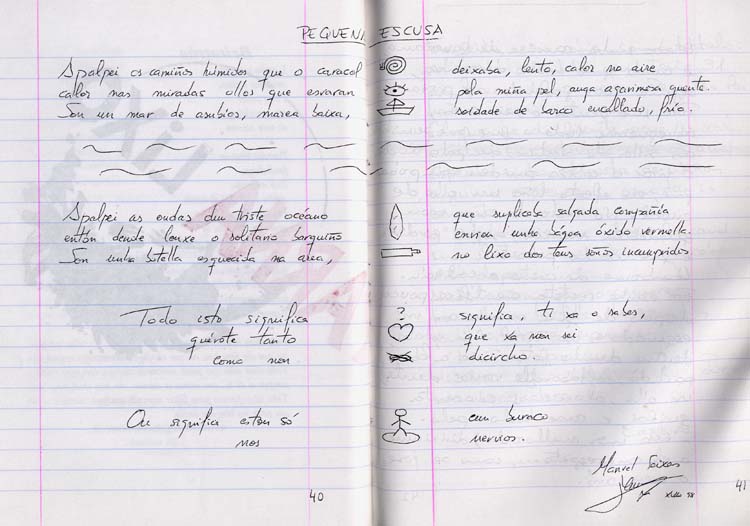 PEQUENA ESCUSA
Apalpei os camiños húmidos que o caracol deixaba, lento, calor no aire
calor nas miradas ollos que esvaran pola miña pel, auga agarimosa quente.
Son un mar de asubíos, marea baixa, soidade de barco encallado, frío.
Apalpei as ondas dun triste océano que suplicaba salgada compañía
entón dende lonxe o solitario barquiño enviou unha bágoa óxido vermella.
Son unha botella esquecida na area, no lixo dos teus soños incumpridos
Todo isto significa ? significa, ti xa o sabes,
quérote tanto que xa non sei
como non dicircho.
Ou significa estou só cun buraco
nos nervios.
Manuel Seixas
Xullo 98
40
41